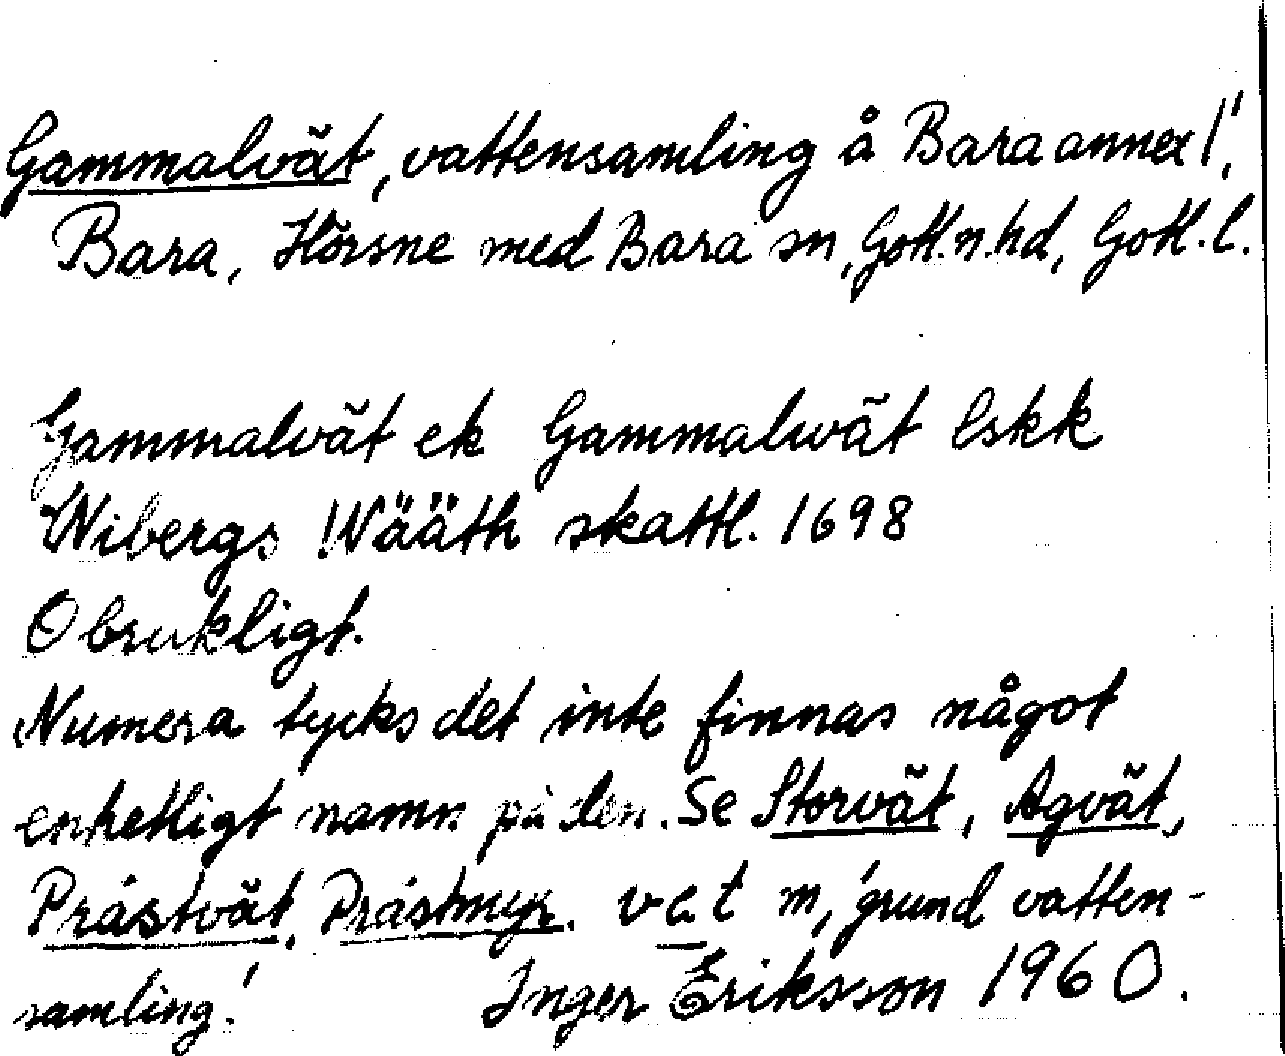 Gammalvät, vattensamling å Bara annex 1¹,
Bara, Hörsne med Bara sn, Gotl. n. hd, Gotl. l.
Gammalvät ek Gammalwät lskk
Wibergs Wääth skattl. 1698
Obrukligt.
Numera tycks det inte finnas något
enhetligt namn på den. Se Storvät, Agvät,
Prästvät, Prästmyr. vät m, 'grund vatten-
samling.' Inger Eriksson 1960.